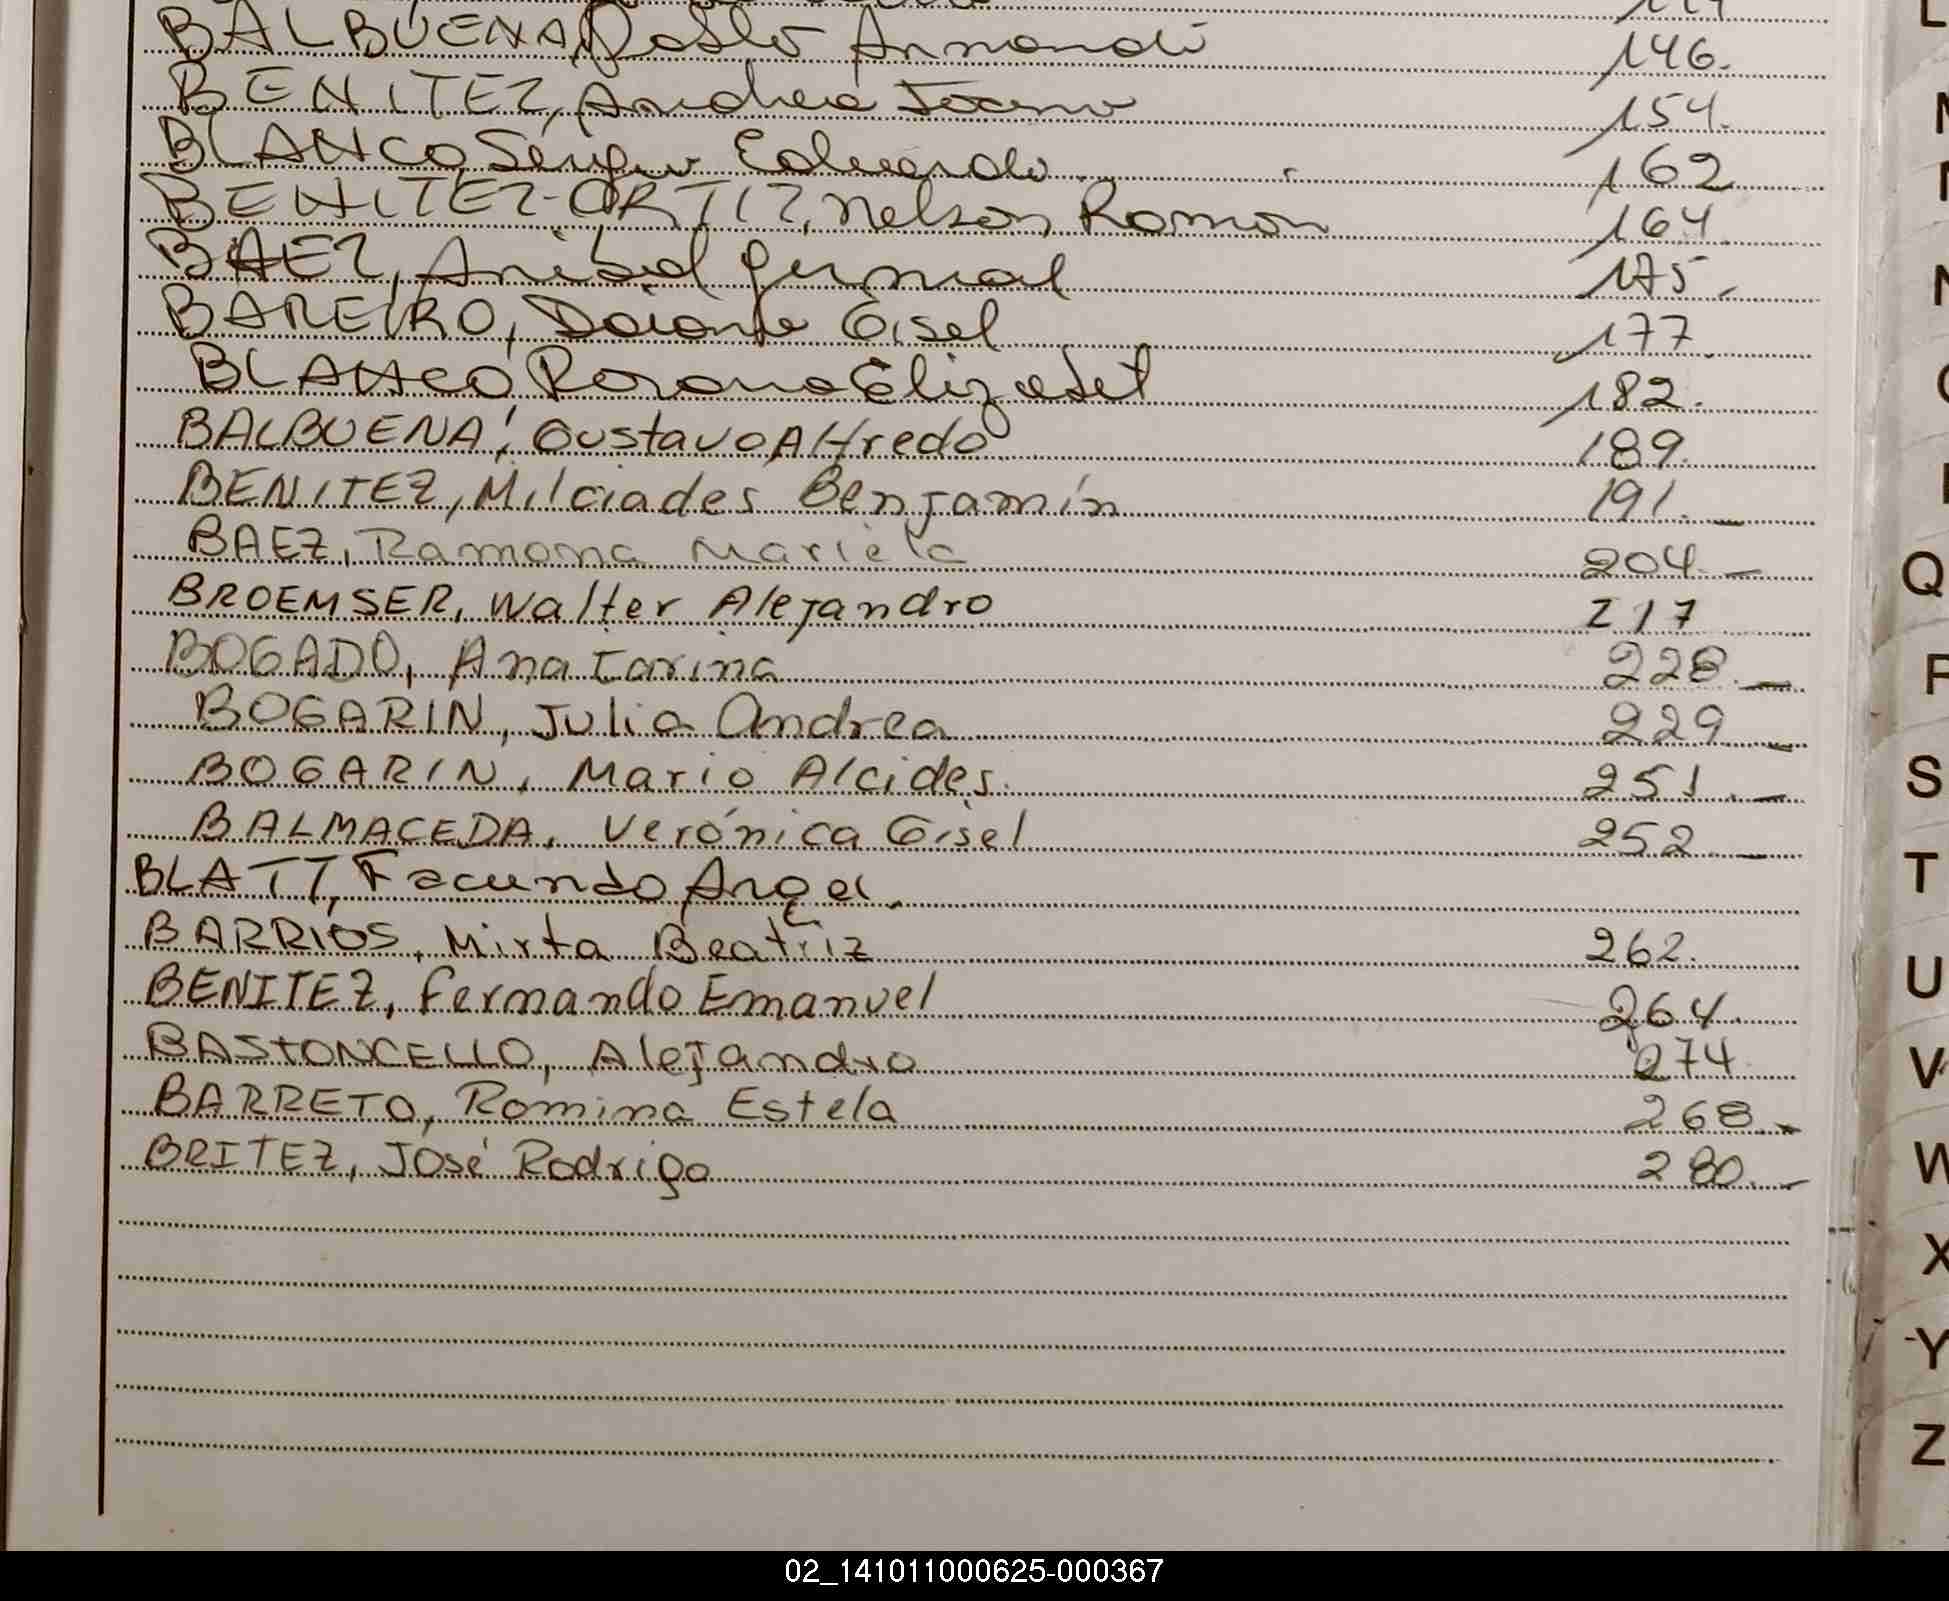 BALBUENA, Pablo Armando 146.
BENITEZ, Andrea Joana 154.
BLANCO, Sergio Eduardo 162
BENITEZ-ORTIZ, Nelson Ramon 164
BAEZ, Anibal 175.
BAREIRO, Daiana Gisel 177
BLANCO, Rosana Elizabet 182.
BALBUENA, Gustavo Alfredo 189.
BENITEZ, Milciades Benjamín 191.
BAEZ, Ramona Mariela 204.
BROEMSER, Walter Alejandro 217
BOGADO, Ana Carina 228.
BOGARIN, Julia Andrea 229
BOGARIN, Mario Alcides. 251.
BALMACEDA, Verónica Gisel 252
BLATT, Facundo Angel.
BARRIOS, Mirta Beatriz 262.
BENITEZ, Fernando Emanuel 264.
BASTONCELLO, Alejandro 274
BARRETO, Romina Estela 268.
BRITEZ, José Rodrigo 280.
Q
S
T
U
V
W
X
Y
Z
02_141011000625-000367